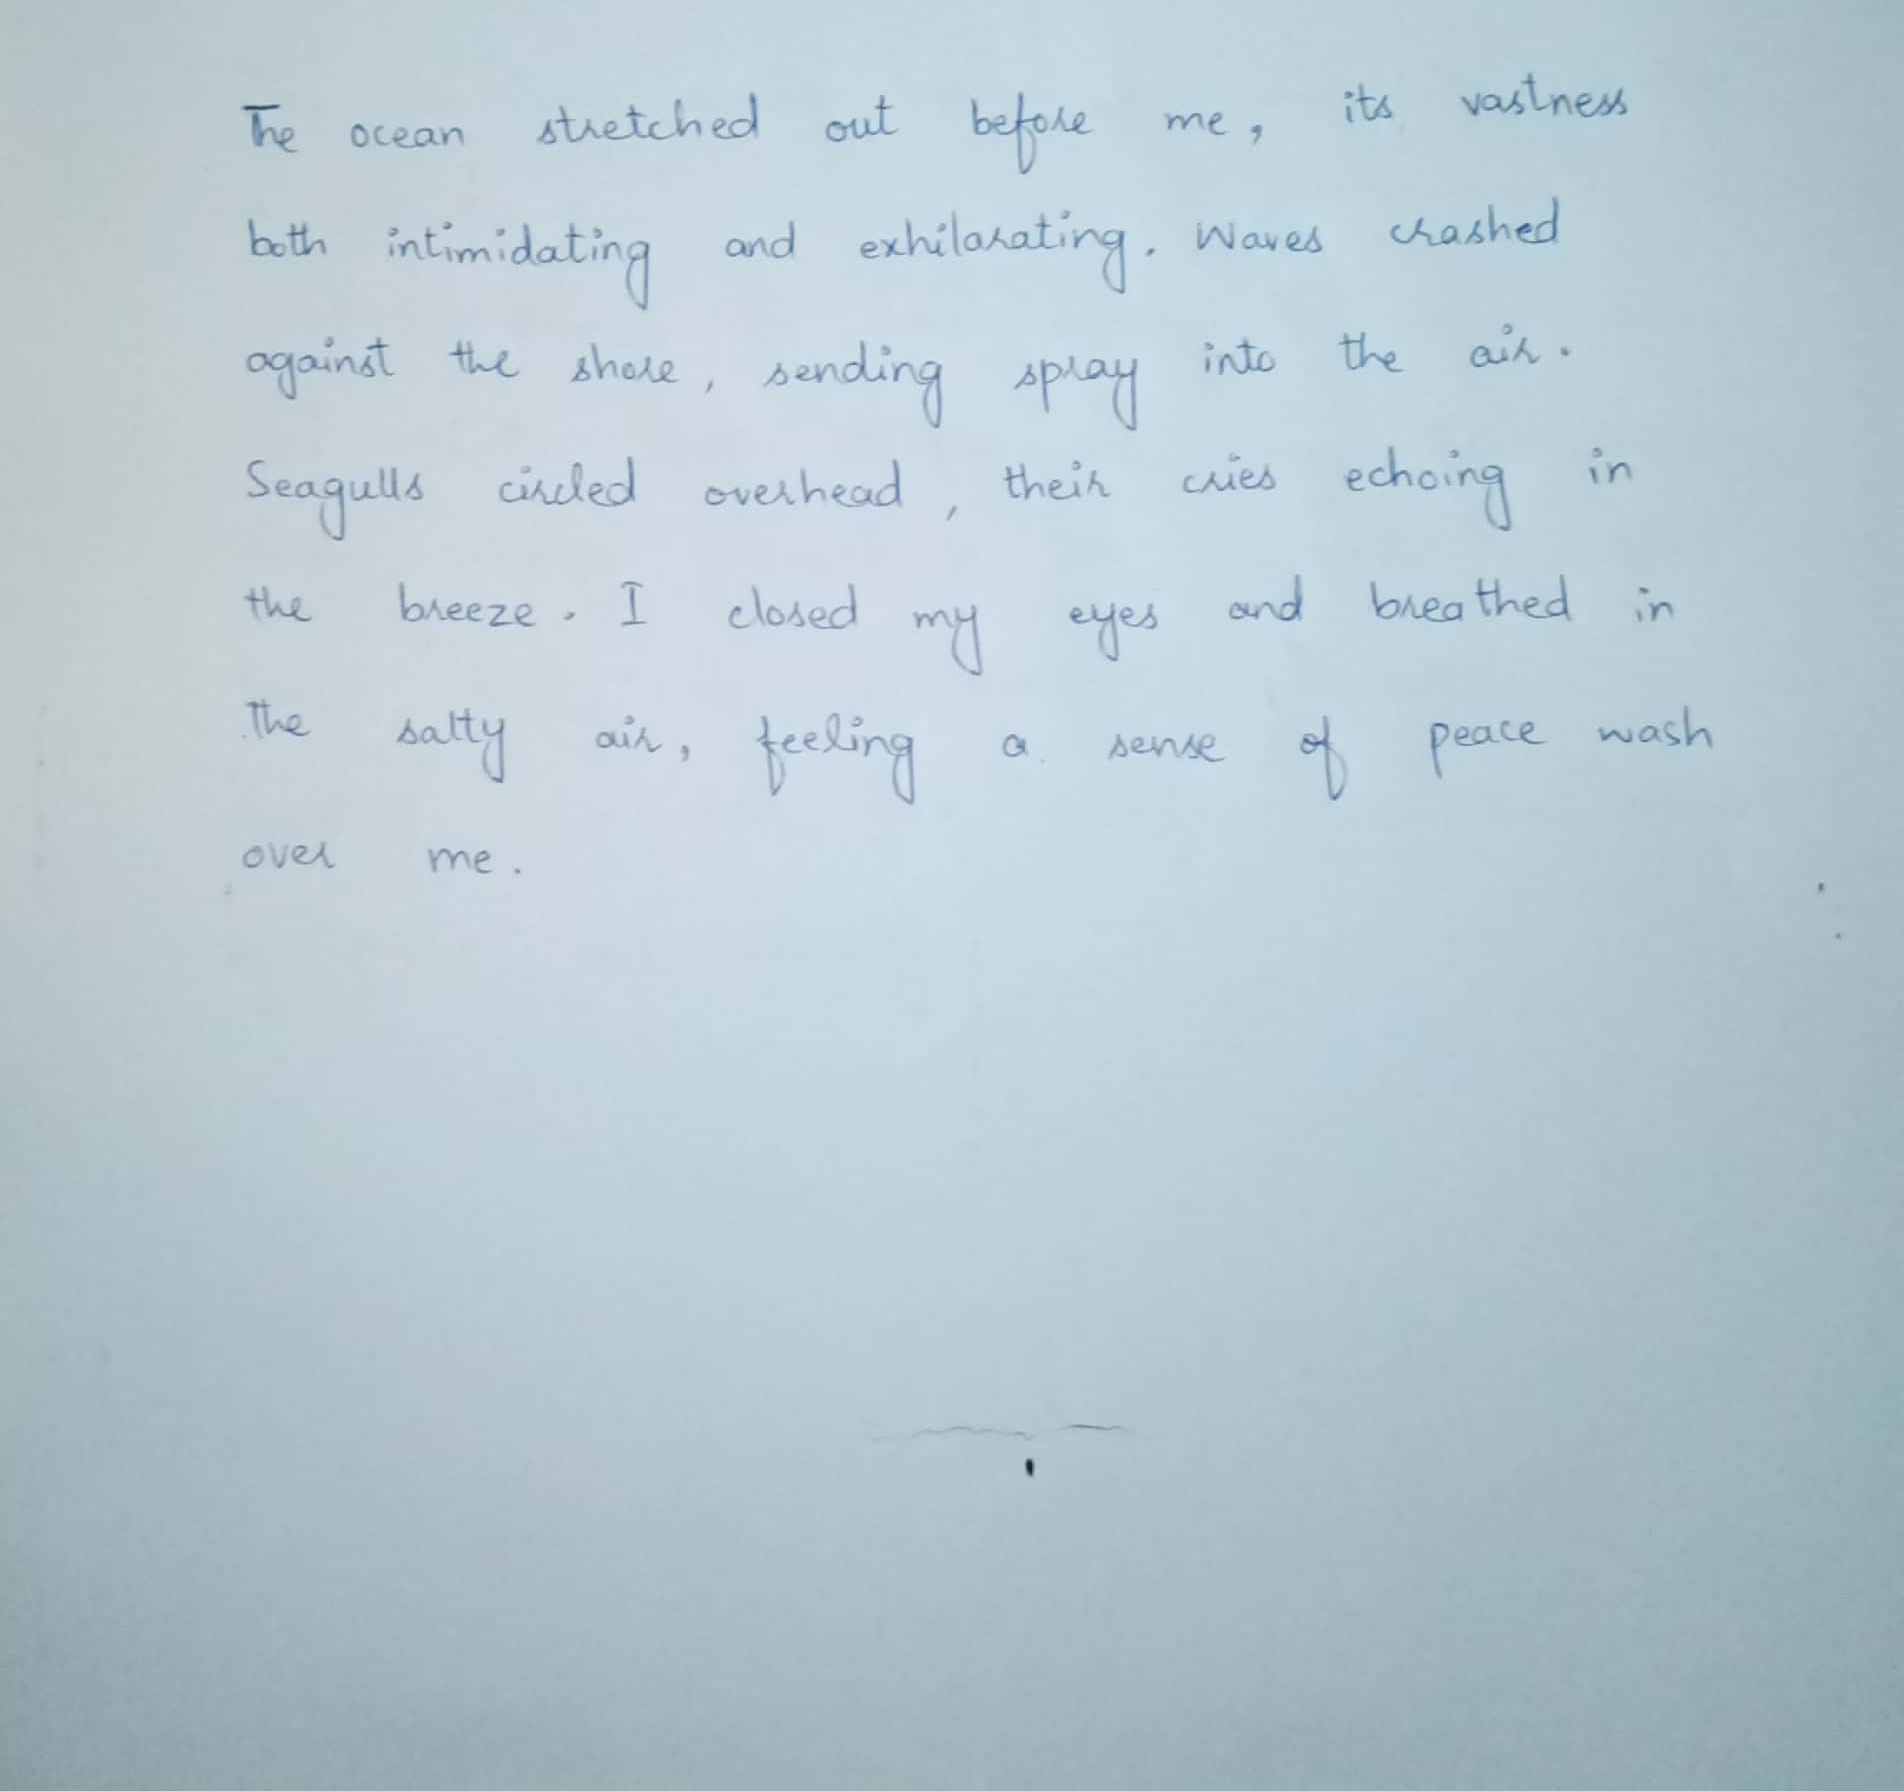 The ocean stretched out before me, its vastness
both intimidating and exhilarating. Waves crashed
against the shore, sending spray into the air.
Seagulls circled overhead, their cries echoing in
the breeze. I closed my eyes and breathed in
the salty air, feeling a sense of peace wash
over me.